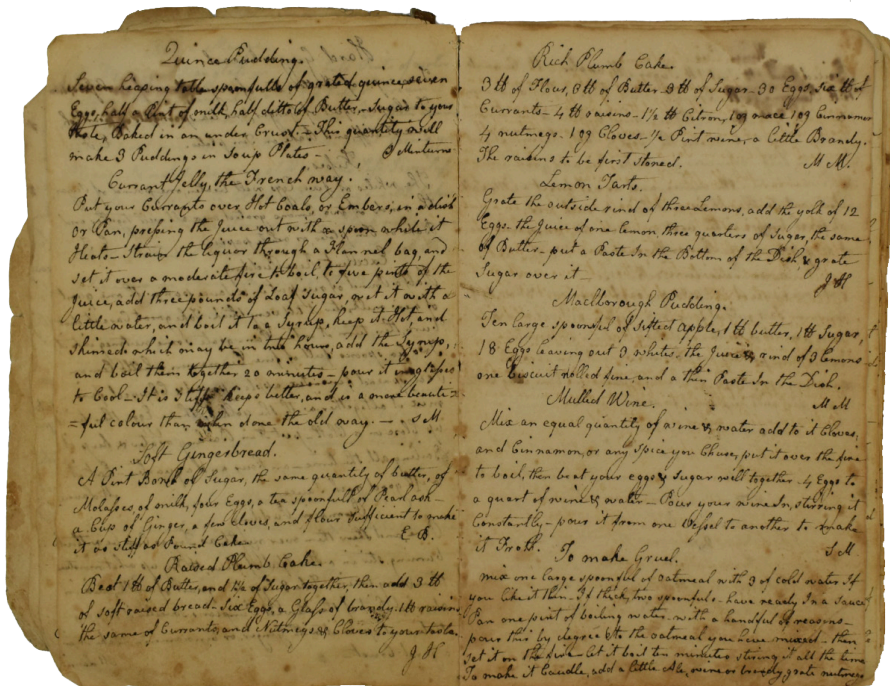 Quince Pudding.
Seven heaping table spoonfulls of grated quince, seven
Eggs, half a Pint of milk, half ditto of Butter, Sugar to your
taste, Baked in an under Crust. – This quantity will
make 3 Puddings in Soup Plates – S Minturn
Currant Jelly, the French way.
Put your Currants over Hot Coals, or Embers, in a dish
or Pan, pressing the Juice out with a spoon while it
Heats – Strain the liquor through a Flannel bag, and
set it over a moderate fire to boil, to five pints of the
Juice, add three pounds of Loaf Sugar, wet it with a
little water, and boil it to a Syrup, keep it Hot, and
skimed which may be in two hours, add the Syrup,
and boil them together 20 minutes – pour it in glasses
to Cool – It is stiff keeps better, and is a more beauti=
=ful colour than when done the old way. – S M
Soft Gingerbread.
A Pint Bowl of Sugar, the same quantity of butter, of
Molasses, of milk, four Eggs, a tea spoonfull of Pearl ash –
a Cup of Ginger, a few cloves, and flour sufficient to make
it as stiff as Pound Cake. E B.
Raised Plumb Cake.
Beat 1 lb of Butter, and 1½ of Sugar together, then add 3 lb
of soft raised bread – Six Eggs, a Glass of brandy – 1 lb raisins
the same of Currants, and Nutmegs & Cloves to your taste
J H
Rich Plumb Cake.
3 lb of Flour, 3 lb of Butter – 3 lb of Sugar – 30 Eggs, Six lb of
Currants – 4 lb raisins – 1½ lb Citron, 1 oz mace 1 oz Cinnamon
4 nutmegs – 1 oz Cloves – ½ Pint wine, a little Brandy.
The raisins to be first stoned. M M.
Lemon Tarts.
Grate the outside rind of three Lemons, add the yolk of 12
Eggs – the Juice of one lemon, three quarters of Sugar, the same
of Butter – put a Paste In the Bottom of the Dish & grate
Sugar over it – J H
Marlborough Pudding.
Ten large spoonful of sifted apple, 1 lb butter, 1 lb Sugar,
18 Eggs leaving out 3 whites, the Juice & rind of 3 lemons
one Biscuit rolled fine, and a thin Paste In the Dish.
Mulled Wine. M M
Mix an equal quantity of wine & water add to it Cloves,
and Cinnamon, or any spice you Chuse, put it over the fire
to boil, then beat your eggs & Sugar well together – 4 Eggs to
a quart of wine & water – Pour your wine In, stirring it
Constantly – pour it from one Vessel to another to make
it Froth. S M
To make Gruel.
mix one large spoonful of oatmeal with 3 of cold water If
you like it thin – If thick, two spoonfuls – have ready In a Sauce
Pan one pint of boiling water – with a handful of reasons –
pour this by degrees to the oatmeal you have mixed – then
set it on the fire – let it boil ten minutes stiring it all the time
To make it Caudle, add a little Ale, wine or brandy grate nutmeg